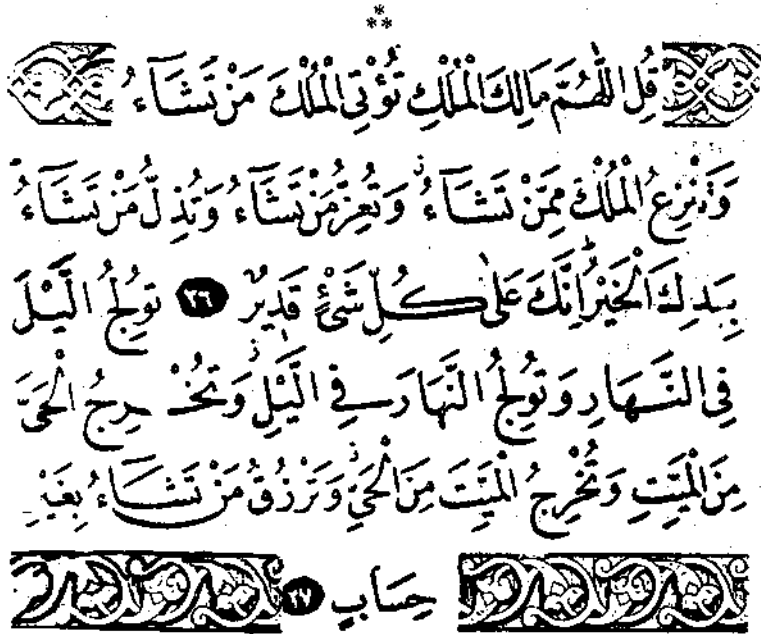 قُلِ اللَّهُمَّ مَالِكَ الْمُلْكِ تُؤْتِي الْمُلْكَ مَنْ تَشَآءُ
وَتَنْزِعُ الْمُلْكَ مِمَّنْ تَشَآءُ وَتُعِزُّ مَنْ تَشَآءُ وَتُذِلُّ مَنْ تَشَآءُ
بِيَدِكَ الْخَيْرُ إِنَّكَ عَلَىٰ كُلِّ شَىْءٍ قَدِيرٌ ٢٦ تُولِجُ الَّيْلَ
فِي النَّهَارِ وَتُولِجُ النَّهَارَ فِي الَّيْلِ وَتُخْرِجُ الْحَيَّ
مِنَ الْمَيِّتِ وَتُخْرِجُ الْمَيِّتَ مِنَ الْحَيِّ وَتَرْزُقُ مَنْ تَشَآءُ بِغَيْرِ
حِسَابٍ ٢٧